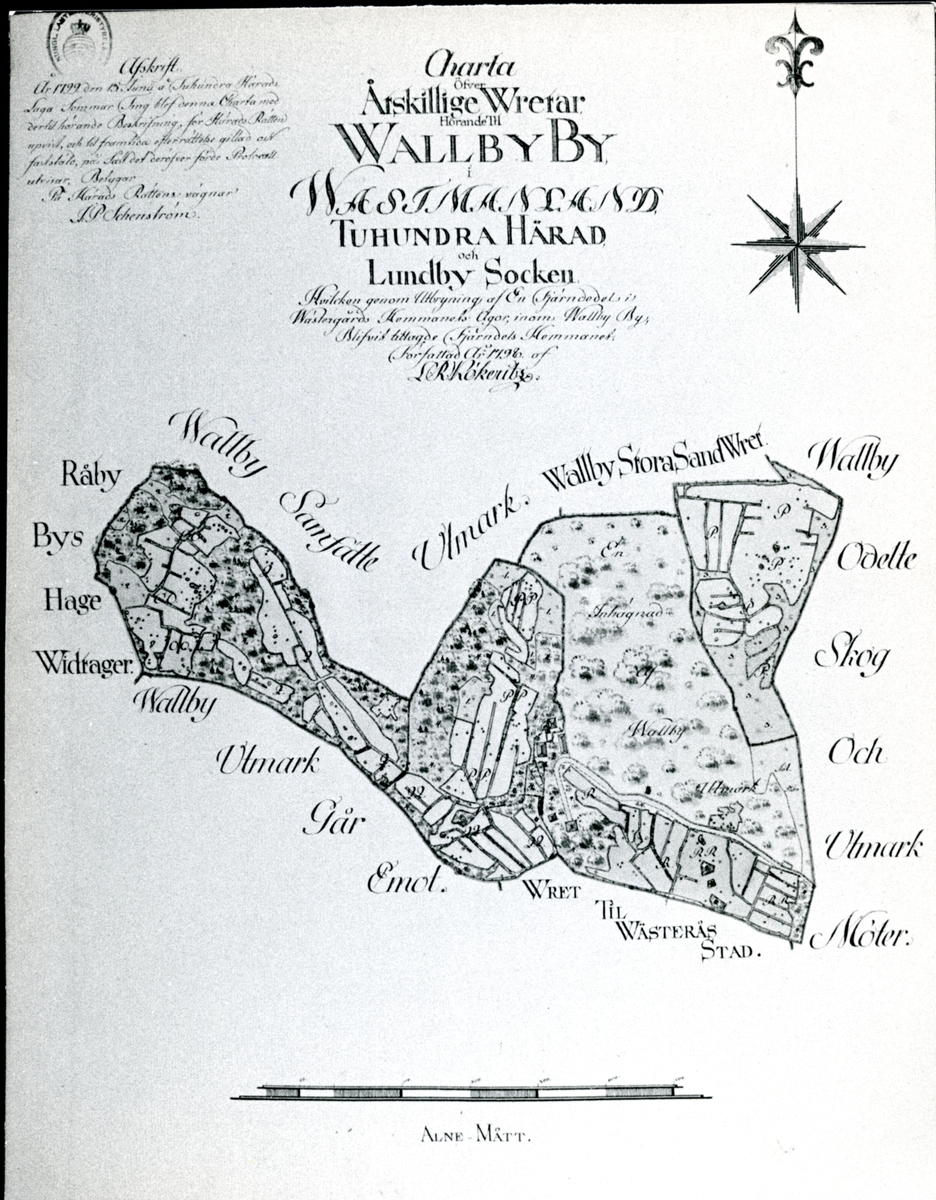 Afskrift.
År 1799 den 15 Junii å Tuhundra Härads
Laga Sommar Ting blef denna Charta med
dertil hörande Beskrifning, för Härads Rätten
upvist, och til framtida efterrättelse gillad och
fastställd, på sätt det deröfver förde Protocoll
utvisar, Betygar
På Härads Rättens vägnar
Schenström.
Charta
Öfver
Åtskillige Wretar
Hörande Til
WALLBY BY,
i
WÄSTMANLAND,
TUHUNDRA HÄRAD,
och
Lundby Socken.
Hvilcken genom Utbryning af En Fjärndedel i
Wästergårds Hemmanets Ägor, inom Wallby By,
Blifvit tillagde Fjärndels Hemmanet.
Författad År 1796. af
Wallby
Samfälte
Utmark.
Wallby Stora Sand Wret.
Wallby
Odelte
Skog
Och
Utmark
Möter.
Råby
Bys
Hage
Widtager.
Wallby
Utmark
Går
Emot.
WRET
TIL
WÄSTERÅS
STAD.
En
Inhägnad
af
Wallby
Utmark
ALNE-MÅTT.